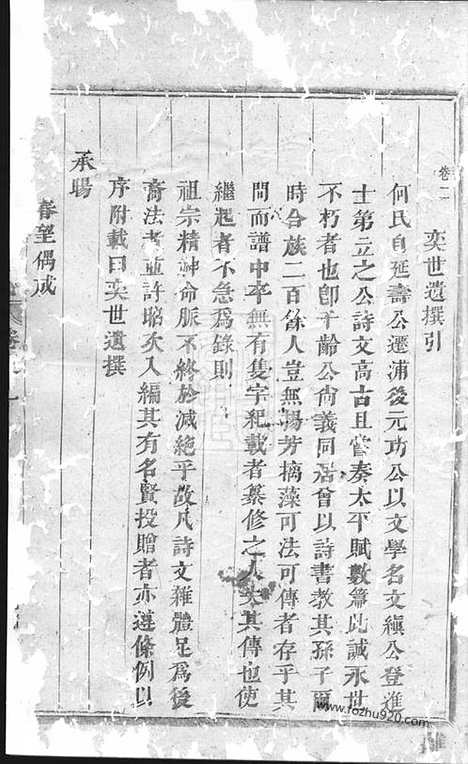 卷二
奕世遺撰引
何氏自延壽公遷浦後元功公以文學名文縝公登進
士第立之公詩文高古且嘗奏太平賦數篇此誠永世
不朽者也卽千齡公尚義同居曾以詩書教其孫子爾
時合族二百餘人豈無揚芳摘藻可法可傳者存乎其
間而譜中卒無有隻字紀載者纂修之人失其傳也使
繼起者不急爲錄則
祖宗精神命脈不終於滅絕乎故凡詩文雜體足爲後
裔法者並許昭次入編其有名賢投贈者亦遵條例以
序附載曰奕世遺撰
承暘
春望偶成
www.fozhu920.com